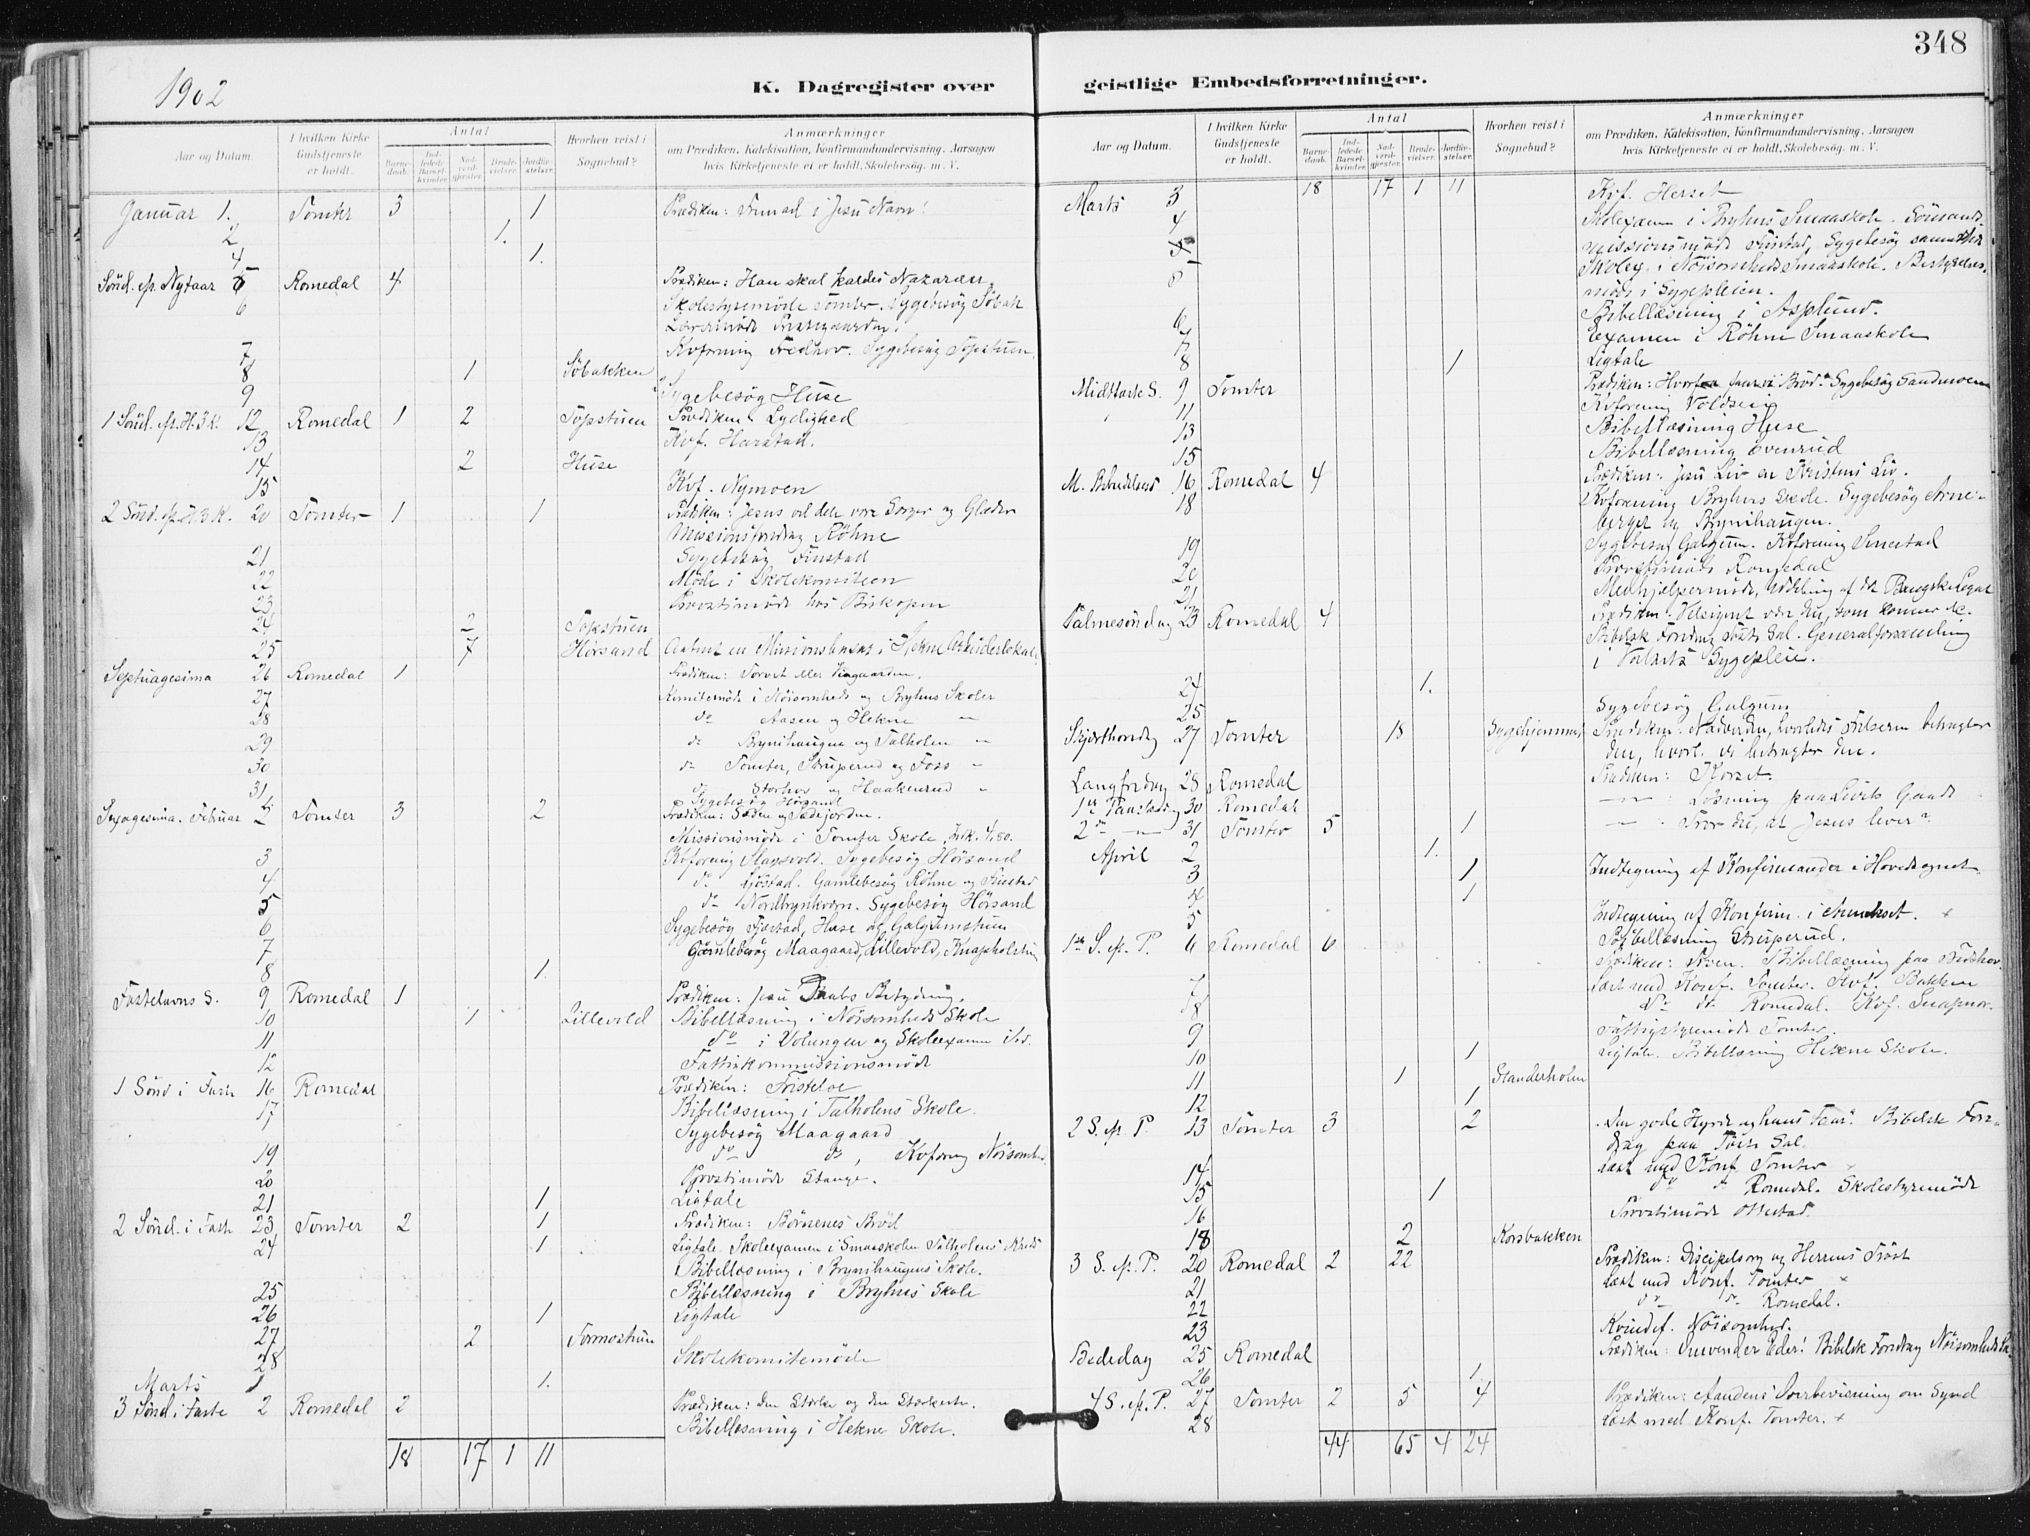 348
1902
K. Dagregister over geistlige Embedsforretninger.
Aar og Datum.
I hvilken Kirke Gudstjeneste er holdt.
Antal
Barnedaab.
Indledede Barselkvinder.
Nadverdgjester.
Brudevielser.
Jordfæstelser.
Hvorhen reist i Sognebud?
Anmærkninger
om Prædiken, Katekisation, Konfirmandundervisning, Aarsagen
hvis Kirketjeneste ei er holdt, Skolebesøg. m. V.
Januar 1. Tomter 3 1 Prædiken: Frimod i Jesu Navn!
2 1.
4 1.
Sönd. ef. Nytaar 5 Romedal 4 Prædiken: Han skal kaldes Nazaræer.
6 Skolestyremöde Tomter. Sygebesög Söbak
Læremöde Prestegaarden.
7 Kvforening Fredhov. Sygebesög Topstuen.
8 1 Söbakken
9 Sygebesög Huse
1 Sönd. ef. H. 3 K. 12 Romedal 1 2 Topstuen Prædiken: Lydighed
13 Kvf. Harstad.
14 2 Huse
15 Kvf. Nymoen
2 Sönd. ef. H. 3 K. 20 Tomter 1 1 Prædiken: Jesus vil dele vore Sorger og Glæder
Missionsforedrag Röhne
21 Sygebesög Finstad
22 Möde i Skolekomiteen
23 Provstimöde hos Biskopen
24 2 Topstuen
25 7 Hörsand
Septuagesima 26 Romedal 1 Prædiken: Torvet eller Vingaarden.
27 Komitemöde i Nöisomheds og Bryhns Skoler
28 do Aasen og Hekne "
29 do Brynihaugen og Talholen "
30 do Tomter, Struperud og Foss "
31 do Storhov og Haakenrud "
Sygebesög Hörsand
Sexagesima. Februar 2 Tomter 3 2 Prædiken: Sæden og Sædejorden.
Missionsmöde i Tomter Skole
3 Kvforening Slagsvold. Sygebesög Hörsand
4 do Sjöstad. Gamlebesög Röhne og Finstad
5 do Nordbrynhvern. Sygebesög Hörsand
6 Sygebesög Fjæstad, Huse og Galgumstuen
7 Gamlebesög Maagaard, Lillevold, Knapholstuen
8 1.
Fastelavns S. 9 Romedal 1 Prædiken: Jesu Daabs Betydning.
10 1 Lillevold Bibellæsning i Nöisomheds Skole
11 do i Volungen og Skoleexamen i do.
12 Fattikommissionsmöde
1 Sönd i Faste 16 Romedal Prædiken: Fristelse
17 Bibellæsning i Talholens Skole.
Sygebesög Maagaard
19 do do, Kvforening Nöisomhed.
20 Provstimöde Stange.
21 1 Ligtale
2 Sönd. i Faste 23 Tomter 2 1 Prædiken: Börnenes Bröd
24 1 Ligtale. Skoleexamen i Smaaskolen Talholens Kreds
Bibellæsning i Brynihaugens Skole.
25 Bibellæsning i Bryhns Skole
26 1 Ligtale
27 2 Tormostuen
28 Skolekomitemöde
Marts 1 1.
3 Sönd i Faste 2 Romedal 2 Prædiken: Den Stærke og den Stærkere.
Bibellæsning i Hekne Skole.
18 17 1 11
Aar og Datum.
I hvilken Kirke Gudstjeneste er holdt.
Antal
Barnedaab.
Indledede Barselkvinder.
Nadverdgjester.
Brudevielser.
Jordfæstelser.
Hvorhen reist i Sognebud?
Anmærkninger
om Prædiken, Katekisation, Konfirmandundervisning, Aarsagen
hvis Kirketjeneste ei er holdt, Skolebesøg. m. V.
18 17 1 11
Marts 3 Kvf. Herset
4 Skolexamen i Bryhns Smaaskole.
missionsmöde Finstad, Sygebesög sammesteds
5 Skolex. i Nöisomheds Smaaskole. Bestyrelses-
möde i Sygepleien.
6 Bibellæsning i Asplund.
7 Examen i Röhne Smaaskole
8 1 Ligtale
Midtfaste S. 9 Tomter Prædiken: Hvorfra faar vi Bröd? Sygebesög Sandmoen
11 Kvforening Voldseie
13 Bibellæsning Huse
15 Bibellæsning Evenrud
M. Bebudelses 16 Romedal 4 Prædiken: Jesu Liv en Kristens Liv.
18 Kvforening Bryhns Skole. Sygebesög Arne-
berget og Brynihaugen.
19 Sygebesög Galgum. Kvforening Smestad
20 Provstimöde Romedal
21 Medhjelpermöde, Uddeling af det Bangske Legat
Palmesöndag 23 Romedal 4 Prædiken: Velsignet være du, som kommer &c.
Bibelsk Foredrag Generalforsamling
i Vallsets Sygepleie.
24 1.
25 Sygebesög Galgum
Skjærthorsdag 27 Tomter 18 Sygehjemmet Prædiken: Nadverden, hvorledes Frelseren betragter
den, hvorl. vi betragter den.
Langfredag 28 Romedal Prædiken: Korset.
1ste Paaskedag 30 Romedal — " — : Lösning paa Livets Gaade
2den — " — 31 Tomter 5 1 — " — : Tror du, at Jesus lever?
April 2 1.
3 1 Indtegning af Konfirmander i Hovedsognet
4 1
5 Indtegning af Konfirm. i Annekset. ×
Bibellæsning Struperud.
1ste S. ef. P. 6 Romedal 6 Prædiken: Troen. Bibellæsning paa Fredshov.
7 Læst med Konf. Tomter. Kvf. Bakken
8 do do Romedal. Kvf. Snapnor.
9 Fattigstyremöde Tomter.
10 1 Ligtale. Bibellæsning Hekne Skole.
11 1 Standerholen
12 1
2 S. ef. P. 13 Tomter 3 2 Den gode Hyrde og hans Faar. Bibelsk Fore-
drag paa Sal.
14 Læst med Konf. Tomter ×
15 1 do do Romedal. Skolestyremöde
16 Provstimöde Ottestad.
18 2 Korsbakken
3 S. ef. P. 20 Romedal 2 22 Prædiken: Disciplesorg og Herrens Tröst
21 Læst med Konf. Tomter ×
22 do do Romedal.
23 Kvindef. Nöisomhed.
Bededag 25 Romedal Prædiken: Omvender Eder! Bibelsk Foredrag Nöisomheds
26 1.
4 S. ef. P. 27 Tomter 2 5 4 Prædiken: Aandens Overbevisning om Synd
28 Læst med Konf. Tomter. ×
44 65 4 24